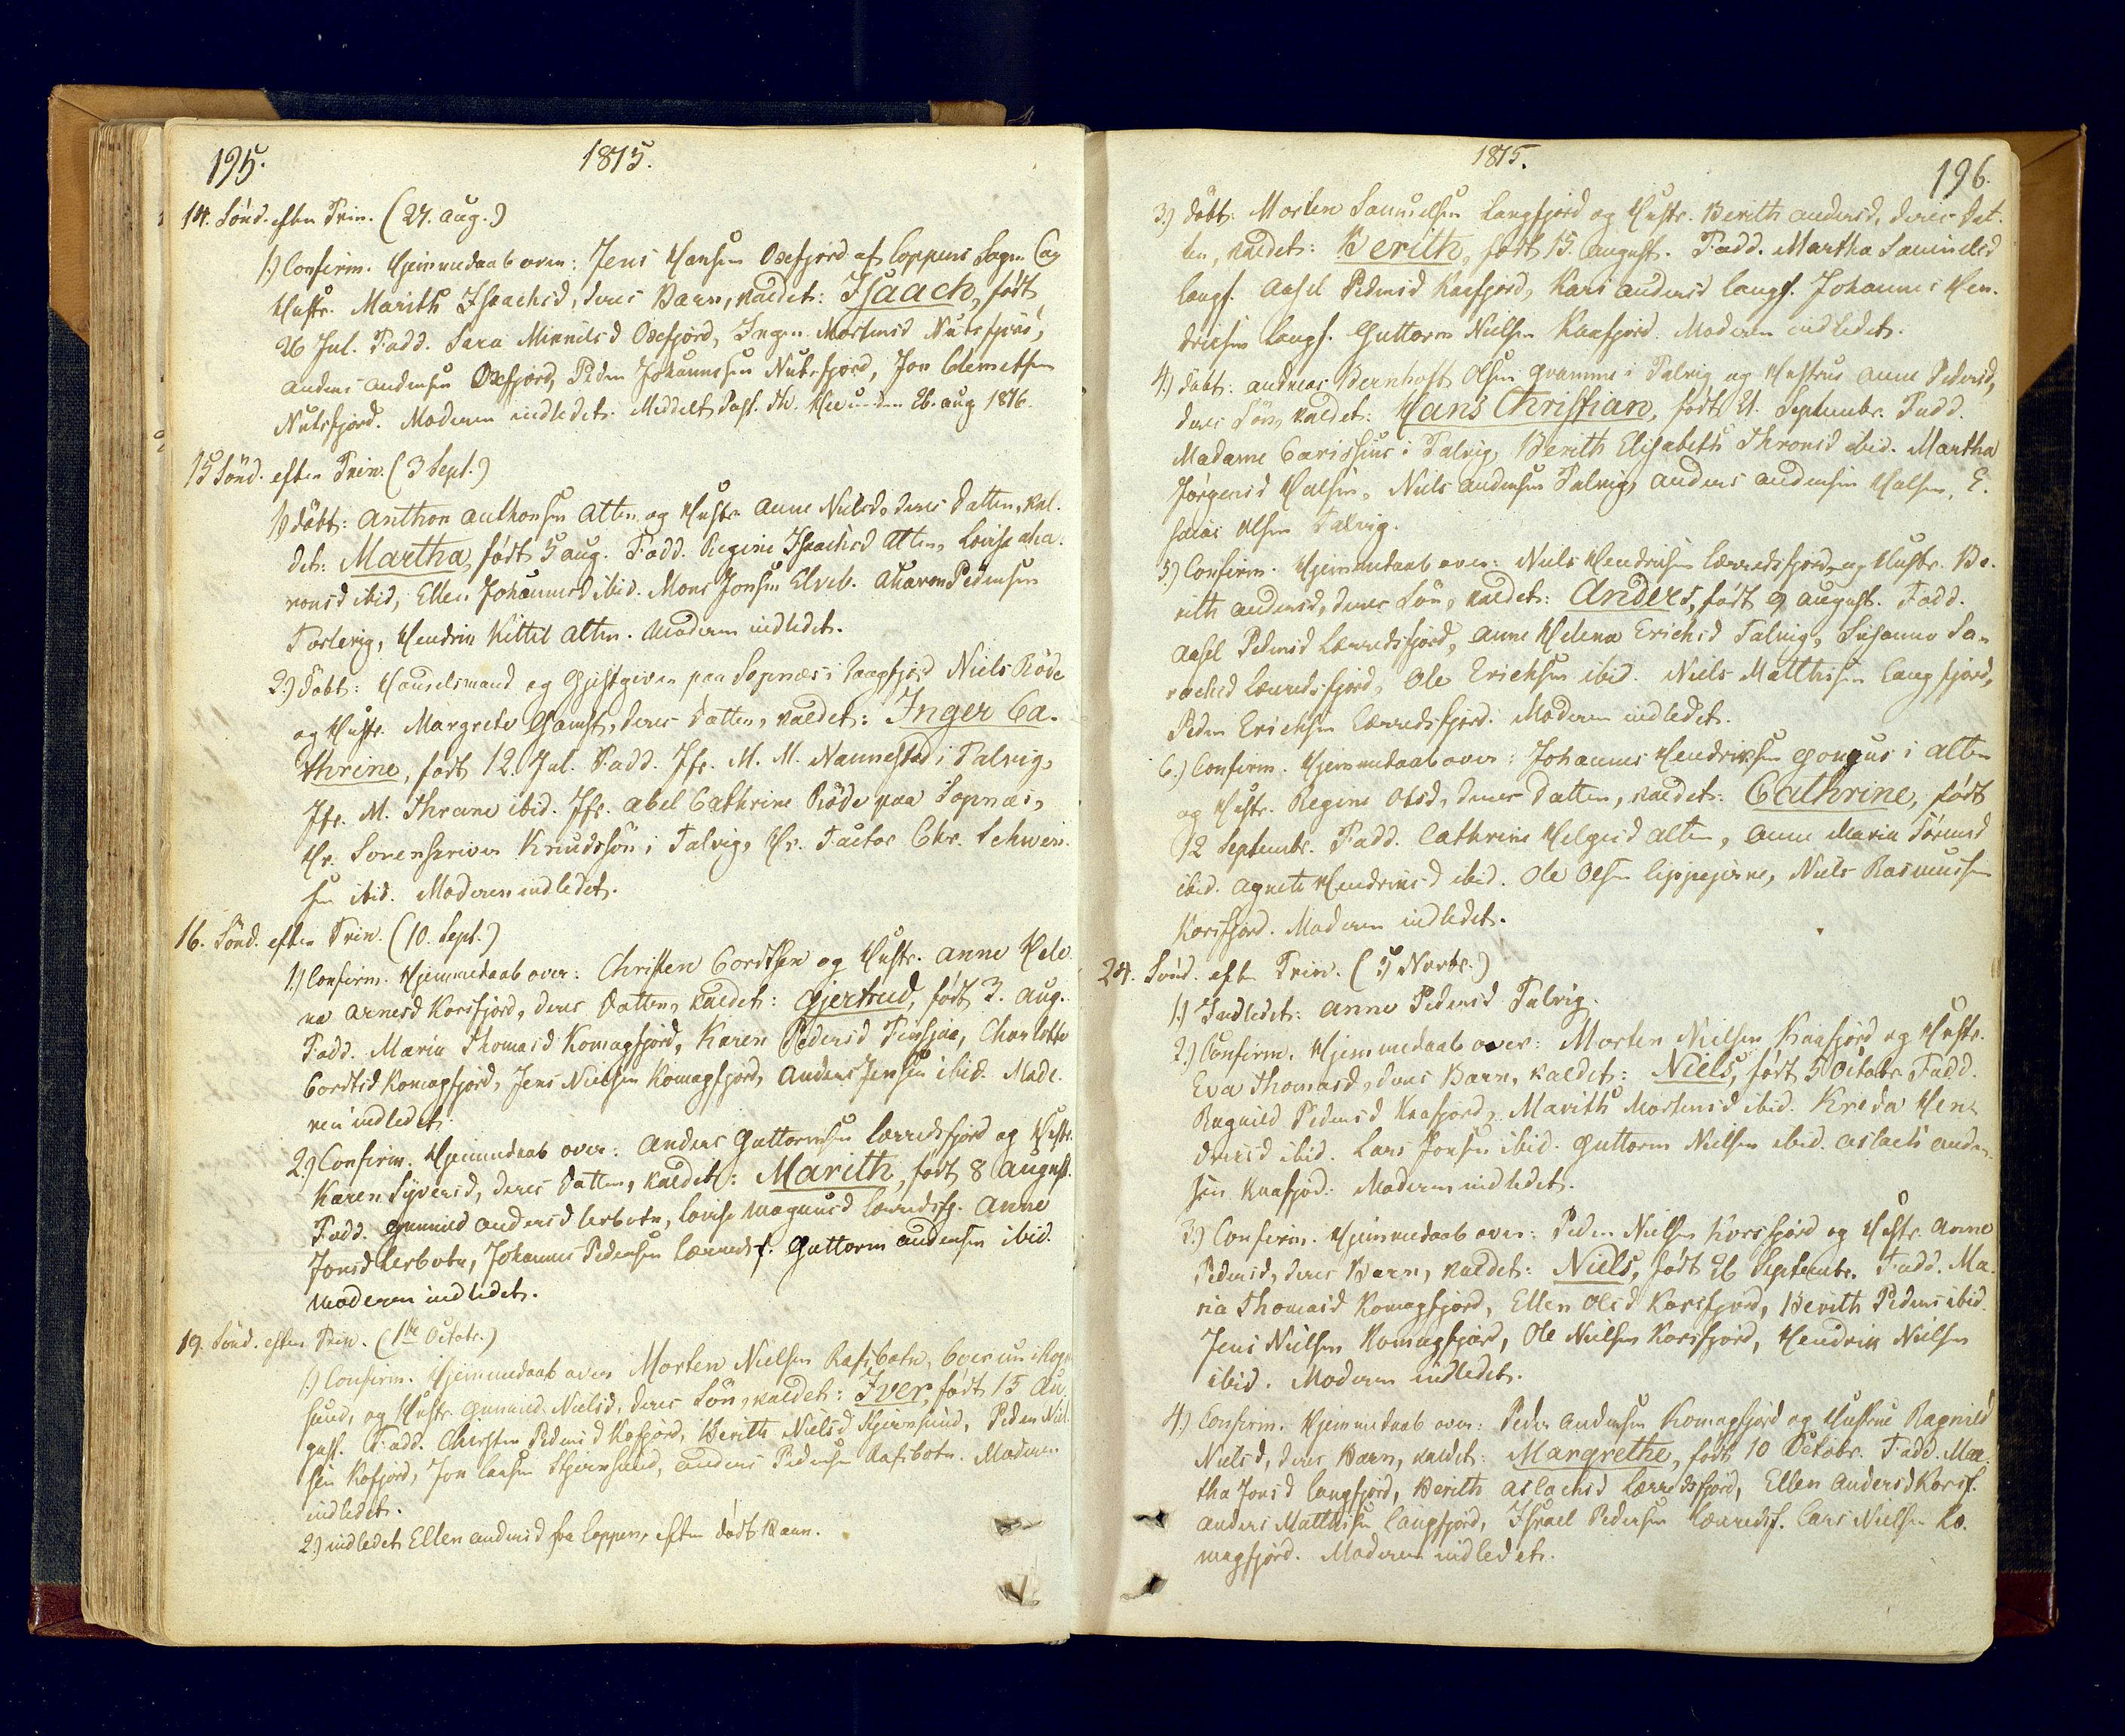 195.
1815.
14. Sönd. efter Trin. (27. Aug.)
1.) Confirm. Hjemmedaab over: Jens Hansen Oxefjord af Loppens Sogn og
Hustr. Marith Isaachsd, deres Barn, kaldet: Isaach, født
26 Jul. Fadd. Sara Mikkelsd Oxefjord, Inger Mortensd Nuvsfjord,
Anders Andersen Oxfjord, Peder Johannesen Nuvsfjord, Jon Clemetsen
Nuvsfjord. Moderen indledet. Meddelt Pass. Th. den 26. aug 1816.
15 Sönd. efter Trin. (3 Sept.)
1) døbt: Anthon Anthonsen Alten og Hustr. Anne Nielsd, deres Datter, kal-
det: Martha, født 5 aug. Fadd. Regine Isaachsd Alten, Lovise Aha-
ronsd ibid, Ellen Johannesd ibid. Mons Jonsen Elveb. Aharon Pedersen
Torlevig, Hendrik Kittil Alten. Moderen indledet.
2.) Døbt: Handelsmand og Gjestgiver paa Sopnæs i Langfjord Niels Röde
og Hustr. Margrete Gamst, deres Datter, kaldet: Inger Ca-
thrine, født 12. Jul. Fadd. Jfr. M. M. Nannestad i Talvig,
Jfr. M. Thrane ibid. Jfr. Abel Cathrine Röde paa Sopnæs,
Hr. Sorenskriver Knudsson i Talvig, Hr. Factor Chr. Schwen-
sen ibid. Moderen indledet.
16. Sönd. efter Trin. (10. Sept.)
1.) Confirm. Hjemmedaab over: Christen Cordtsen og Hustr. Anne Hele-
na Arnesd Korsfjord, deres Datter, kaldet: Gjertrud, født 3. Aug.
Fadd. Maria Thomasd Komagfjord, Karen Pedersd, Charlotte
Cordtsd Komagfjord, Jens Nielsen Komagfjord, Anders Jensen ibid. Mode-
ren indledet.
2.) Confirm. Hjemmedaab over: Anders Guttormsen Lærredsfjord og Hustr.
Karen Syversd, deres Datter, kaldet: Marith, født 8 August.
Fadd. Gunnild Andersd Lerbotn, Lovise Magnusd Lærredsfj. Anne
Jonsd Lerbotn, Johannes Pedersen Lærredsf. Guttorm Andersen ibid.
Moderen indledet.
19. Sönd. efter Trin. (1ste Octobr.)
1.) Confirm. Hjemmedaab over Morten Nielsen Rafsbotn,
sund, og Hustr. Gunnild Nielsd, deres Sön, kaldet: Iver, født 15 Au-
gust. Fadd. Chirsten Pedersd Kofjord, Berith Nielsd Stjernsund, Peder Niel-
sen Kofjord, Jon Larsen Stjernsund, Anders Pedersen Rafsbotn. Moderen
indledet.
2.) indledet Ellen Andersd fra Loppen, efter dødt Barn.
1815.
196.
3.) døbt: Morten Samuelsen Langfjord og Hustr. Berith Andersd, deres Dat-
ter, kaldet: Berith, født 15. August. Fadd. Martha Samuelsd
Langf. Aasel Pedersd Kaafjord, Kari Andersd Langf. Johannes Hen-
driksen Langf. Guttorm Nielsen Kaafjord. Moderen indledet.
4.) døbt: Andreas Bernhoft Olsen Qvamme i Talvig og Hustrue Anne Pedersd,
deres Sön, kaldet: Hans Christian, født 21. Septembr. Fadd.
Madame Carissius i Talvig, Berith Elisabeth Thronsd ibid. Martha
Jörgensd Halsen, Niels Andersen Talvig, Anders Andersen Halsen, E-
saias Olsen Talvig.
5.) Confirm. Hjemmedaab over: Niels Hendriksen Lærredsfjord og Hustr. Be-
rith Andersd, deres Sön, kaldet: Anders, født 9 August. Fadd.
Aasel Pedersd Lærredsfjord, Anne Helena Erichsd Talvig, Susanne Sa-
rachsd Lærredsfjord, Ole Erichsen ibid. Niels Matthisen Langfjord,
Peder Erichsen Lærredsfjord. Moderen indledet.
6.) Confirm. Hjemmedaab over: Johannes Hendriksen Gongus i Alten
og Hustr. Regine Olsd, deres Datter, kaldet: Cathrine, født
12 Septembr. Fadd. Cathrine Helgesd Alten, Anne Maria
ibid. Agnete Hendriksd ibid. Ole Olsen, Niels Rasmussen
Korsfjord. Moderen indledet.
24. Sönd. efter Trin. (5 Novbr.)
1.) Indledet: Anne Pedersd Talvig.
2.) Confirm. Hjemmedaab over: Morten Nielsen Kaafjord og Hustr.
Eva Thomasd, deres Barn, kaldet: Niels, født 5 Octobr. Fadd.
Ragnild Pedersd Kaafjord, Marith Mortensd ibid. Kreda Hen-
driksd ibid. Lars Jonsen ibid. Guttorm Nielsen ibid. Aslach Ander-
sen Kaafjord. Moderen indledet.
3.) Confirm. Hjemmedaab over: Peder Nielsen Korsfjord og Hustr. Anne
Pedersd, deres Barn, kaldet: Niels, født 26 Septembr. Fadd. Ma-
ria Thomasd Komagfjord, Ellen Olsd Korsfjord, Berith Peders ibid.
Jens Nielsen Komagfjord, Ole Nielsen Korsfjord, Hendrik Nielsen
ibid. Moderen indledet.
4.) Confirm. Hjemmedaab over: Peder Andersen Komagfjord og Hustrue Ragnild
Nielsd, deres Barn, kaldet: Margrethe, født 10 Octobr. Fadd. Mar-
tha Jonsd Langfjord, Berith Aslachsd Lærredsfjord, Ellen Andersd Korsf.
Anders Matthisen Langfjord, Israel Pedersen Lærredsf. Lars Nielsen Ko-
magfjord. Moderen indledet.